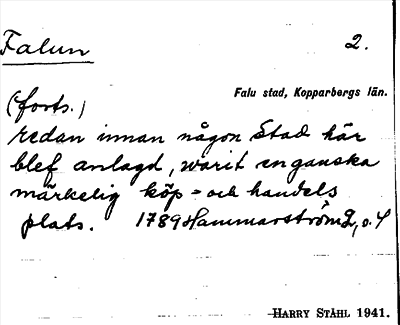 Falun 2.
Falu stad, Kopparbergs län.
(forts.)
redan innan någon Stad här
blef anlagd, warit en ganska
märkelig köp- och handels
plats. 1789 Hammarström 2, s. 4
HARRY STÅHL 1941.